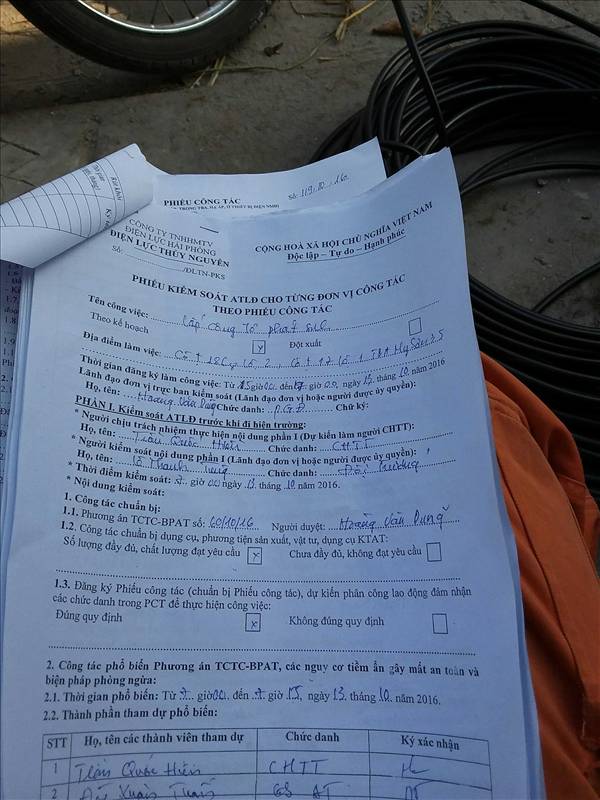 PHIẾU CÔNG TÁC
Số: 119.10.16
CÔNG TY TNHHMTV
ĐIỆN LỰC HẢI PHÒNG
ĐIỆN LỰC THỦY NGUYÊN
Số: /ĐLTN-PKS
CỘNG HOÀ XÃ HỘI CHỦ NGHĨA VIỆT NAM
Độc lập – Tự do – Hạnh phúc
PHIẾU KIỂM SOÁT ATLĐ CHO TỪNG ĐƠN VỊ CÔNG TÁC
THEO PHIẾU CÔNG TÁC
Tên công việc: Lắp công tơ phát
Theo kế hoạch x Đột xuất
Địa điểm làm việc: Cột
Thời gian đăng ký làm việc: Từ giờ đến giờ 00, ngày 13. tháng 10. năm 2016
Lãnh đạo đơn vị trực ban kiểm soát (Lãnh đạo đơn vị hoặc người được ủy quyền):
Họ, tên: Hoàng Văn Dũng Chức danh: P.G.Đ Chữ ký:
PHẦN I. Kiểm soát ATLĐ trước khi đi hiện trường:
* Người chịu trách nhiệm thực hiện nội dung phần I (Dự kiến làm người CHTT):
Họ, tên: Trần Quốc Hiển Chức danh: CHTT
* Người kiểm soát nội dung phần I (Lãnh đạo đơn vị hoặc người được ủy quyền):
Họ, tên: Thanh Tùng Chức danh: Đội trưởng
* Thời điểm kiểm soát: 7 giờ 00 ngày 13. tháng 10 năm 2016.
* Nội dung kiểm soát:
1. Công tác chuẩn bị:
1.1. Phương án TCTC-BPAT số: 60/10/16 Người duyệt: Hoàng Văn Dũng
1.2. Công tác chuẩn bị dụng cụ, phương tiện sản xuất, vật tư, dụng cụ KTAT:
Số lượng đầy đủ, chất lượng đạt yêu cầu x Chưa đầy đủ, không đạt yêu cầu
1.3. Đăng ký Phiếu công tác (chuẩn bị Phiếu công tác), dự kiến phân công lao động đảm nhận
các chức danh trong PCT để thực hiện công việc:
Đúng quy định x Không đúng quy định
2. Công tác phổ biến Phương án TCTC-BPAT, các nguy cơ tiềm ẩn gây mất an toàn và
biện pháp phòng ngừa:
2.1. Thời gian phổ biến: Từ 7 giờ 00. đến 7 giờ 15, ngày 13. tháng 10. năm 2016.
2.2. Thành phần tham dự phổ biến:
STT Họ, tên các thành viên tham dự Chức danh Ký xác nhận
1 Trần Quốc Hiển CHTT
2 Xuân GS AT